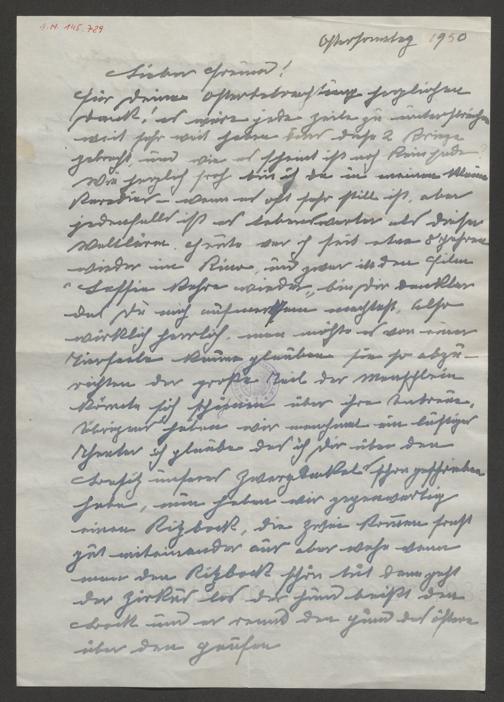 I.N. 145.789
Ostersonntag 1950
Lieber Freund!
Für Deine Osterbetrachtung herzlichen
Dank, es wäre jede Zeile zu unterstreichen
weit sehr weit haben uns diese 2 Kriege
gebracht, und wie es scheint ist noch kein Ende?
Wie herzlich froh bin ich da in meinem kleinen
Paradies – wenn es oft sehr still ist, aber
jedenfalls ist es lebenswerter als dieser
Weltlärm. Heute war ich seit etwa 8 Jahren
wieder im Kino, und zwar in den Film
"Lassie kehre wieder", bin Dir dankbar
das Du mich aufmerksam machtest, also
wirklich herrlich, man möchte es von einer
Tierseele kaum glauben sie so abzu-
richten der große Teil der Menschlein
könnte sich schämen über ihre Untreue.
Übrigens haben wir manchmal ein lustiges
Theater ich glaube das ich Dir über den
Besitz unseres Zwergdackel schon geschrieben
habe, nun haben wir gegenwärtig
einen Kitzbock, die zwei kommen sonst
gut miteinander aus aber wehe wenn
man den Kitzbock schön tut dann geht
der Zirkus los der Hund beißt den
Bock und er rennt den Hund des öftern
über den Haufen